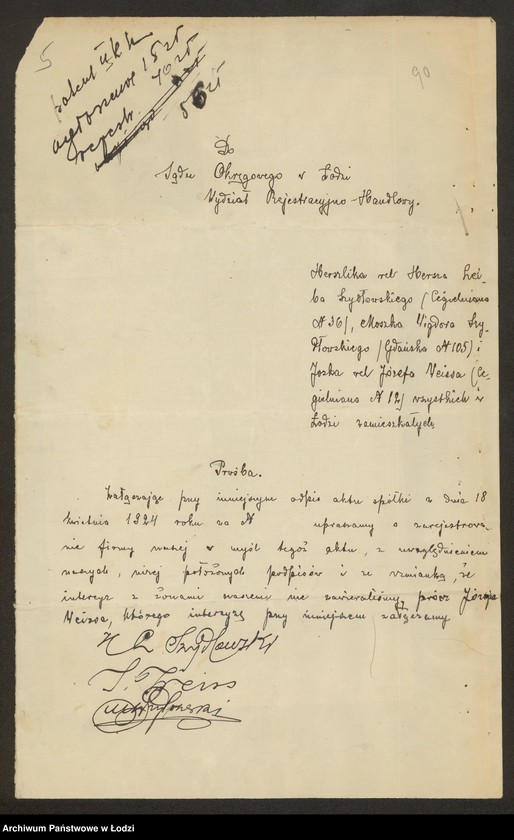 5
90
patent II k h
ogłoszenie 15 zł
rejestr. 40 zł
55 zł
Do
Sądu Okręgowego w Łodzi
Wydział Rejestracyjno-Handlowy.
Herszlika vel Hersza Lei-
ba Szydłowskiego (Cegielniana
№ 36), Moszka Wigdora Szy-
dłowskiego (Gdańska № 105) i
Joska vel Józefa Weissa (Ce-
gielniana № 12) wszystkich w
Łodzi zamieszkałych
Prośba.
Załączając przy niniejszym odpis aktu spółki z dnia 18
kwietnia 1924 roku za № upraszamy o zarejestrowa-
nie firmy naszej w myśl tegoż aktu, z uwzględnieniem
naszych, niżej położonych podpisów i ze wzmianką, że
intercyz z żonami naszemi nie zawieraliśmy, prócz Józefa
Weissa, którego intercyzę przy niniejszem załączamy
H L Szydłowski
J. Weiss
M W Szydłowski
Archiwum Państwowe w Łodzi